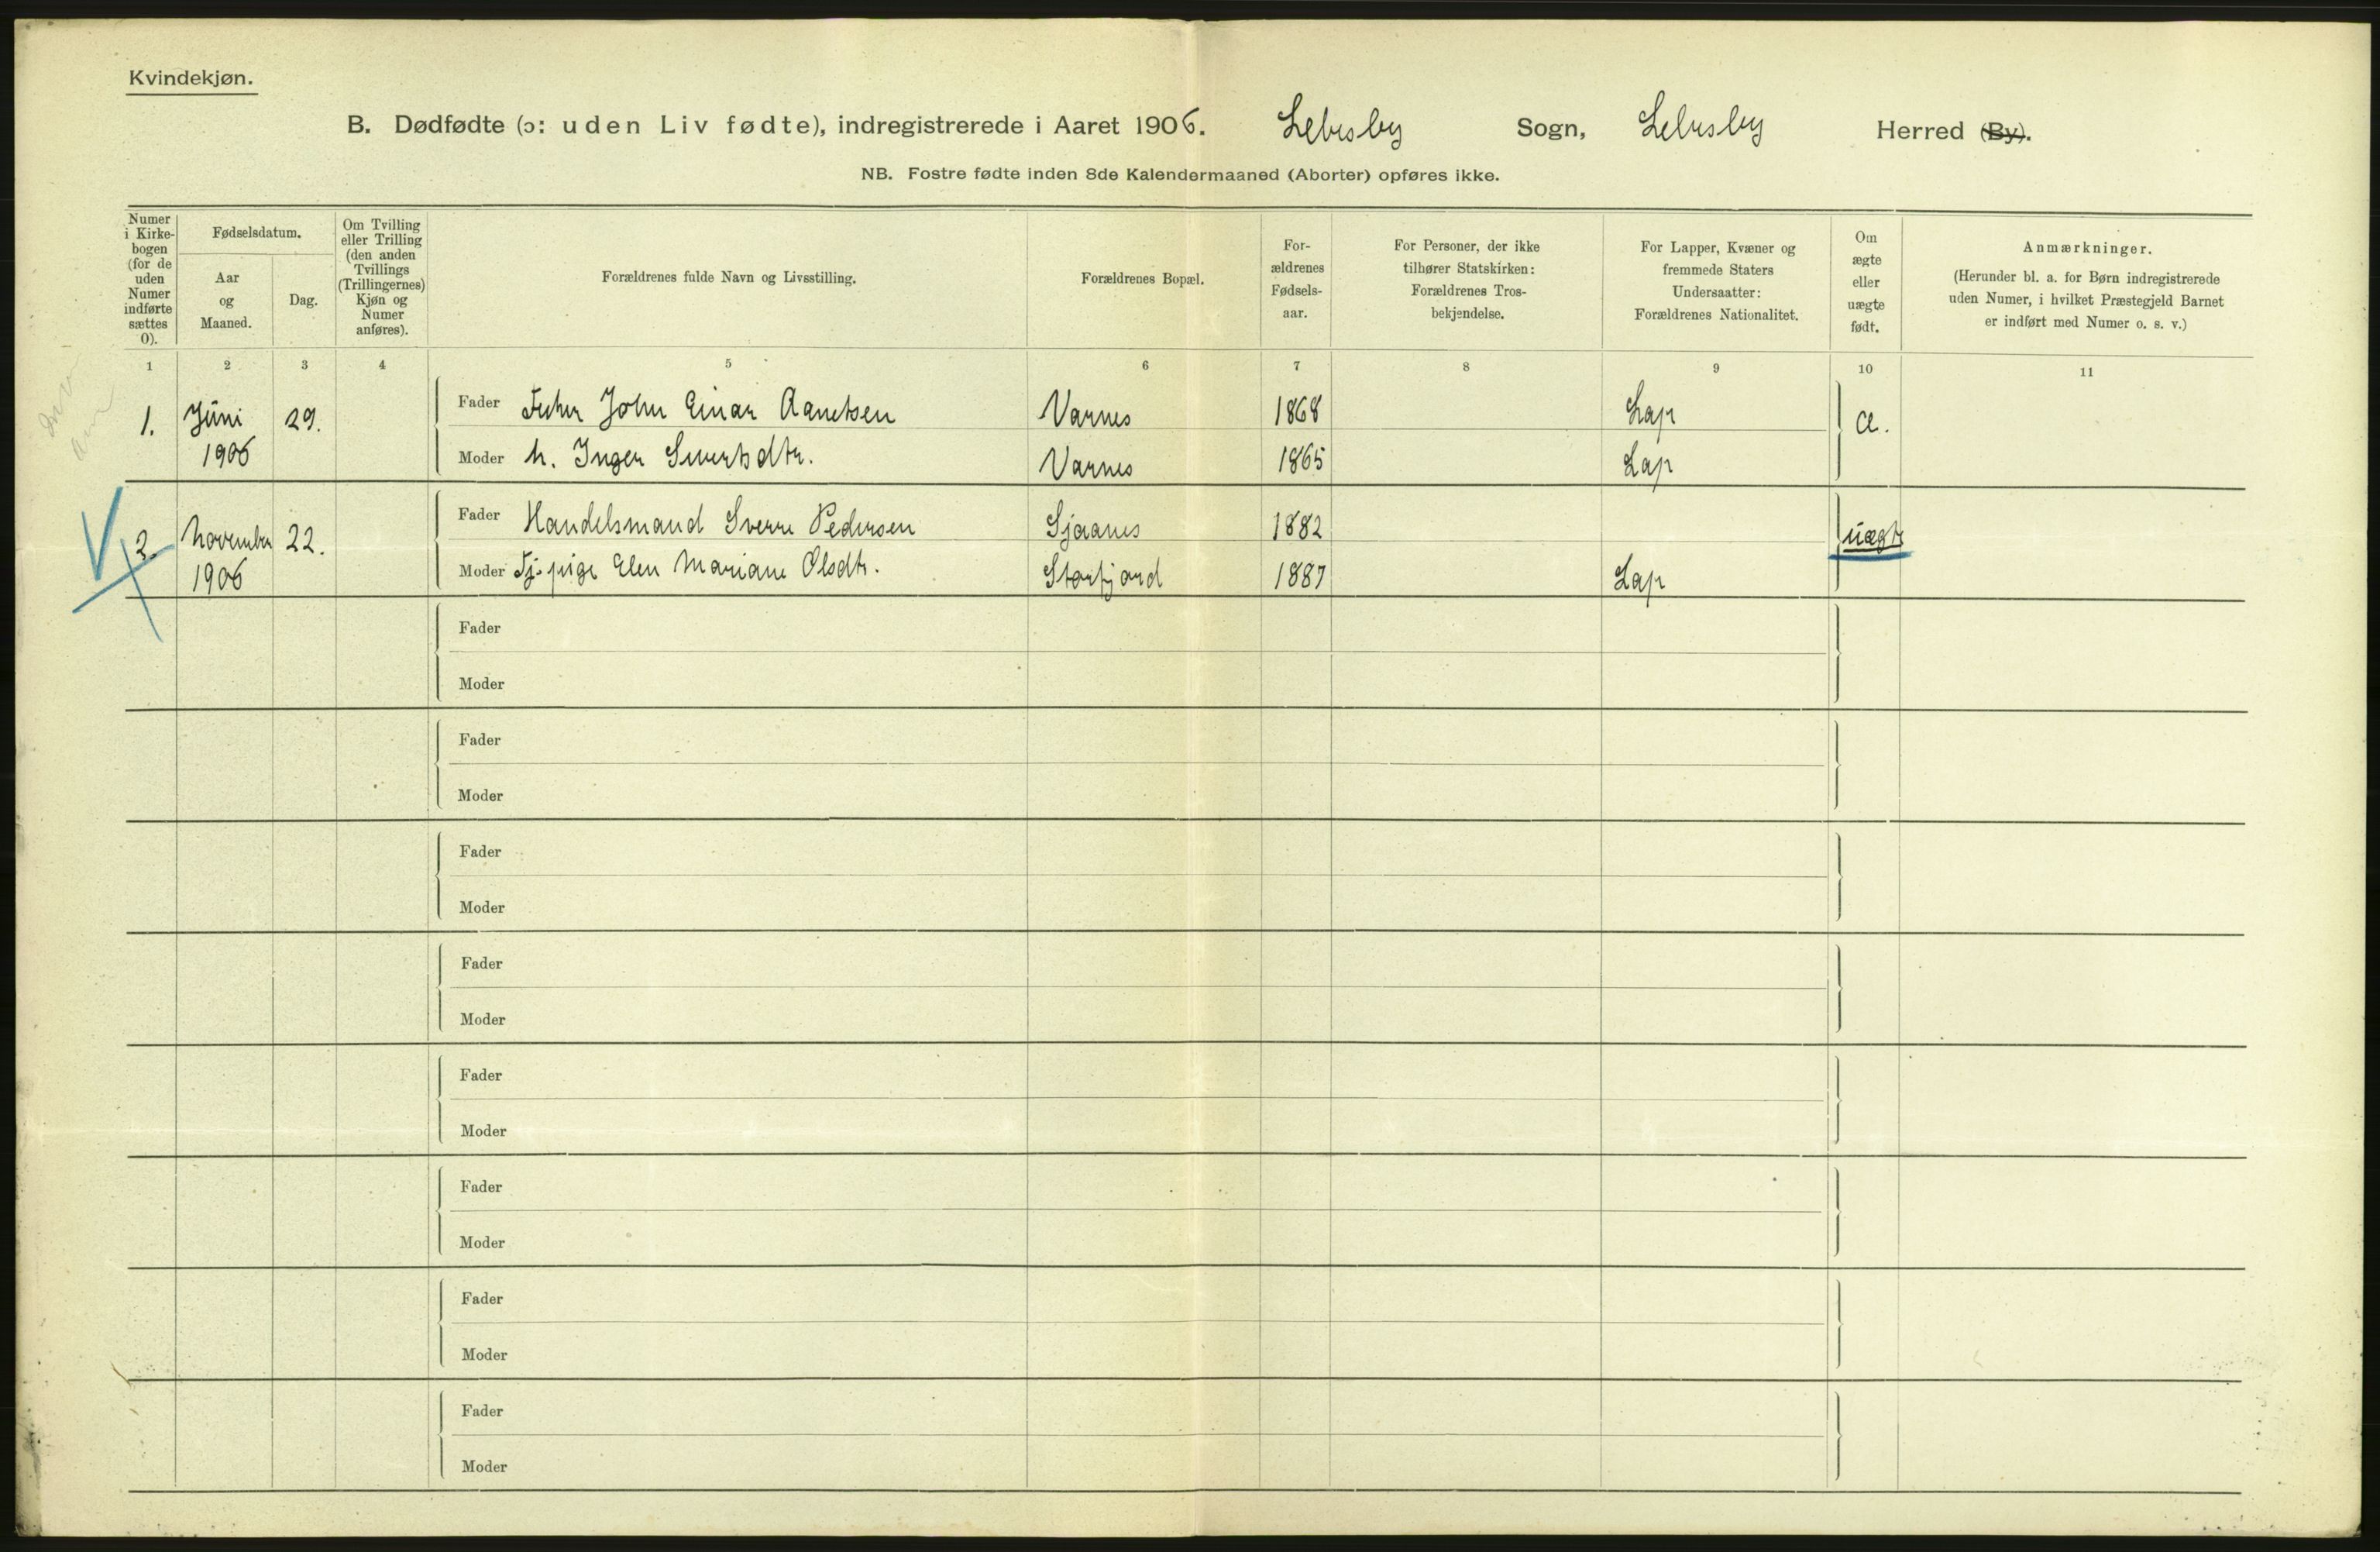 Kvindekjøn.
B. Dødfødte (ɔ: uden Liv fødte), indregistrerede i Aaret 1906. Lebesby Sogn, Lebesby Herred (By).
NB. Fostre fødte inden 8de Kalendermaaned (Aborter) opføres ikke.
Numer
i Kirke-
bogen
(for de
uden
Numer
indførte
sættes
0).
Fødselsdatum.
Aar
og
Maaned.
Dag.
Om Tvilling
eller Trilling
(den anden
Tvillings
(Trillingernes)
Kjøn og
Numer
anføres).
Forældrenes fulde Navn og Livsstilling.
Forældrenes Bopæl.
For-
ældrenes
Fødsels-
aar.
For Personer, der ikke
tilhører Statskirken:
Forældrenes Tros-
bekjendelse.
For Lapper, Kvæner og
fremmede Staters
Undersaatter:
Forældrenes Nationalitet.
Om
ægte
eller
uægte
født.
Anmærkninger.
(Herunder bl. a. for Børn indregistrerede
uden Numer, i hvilket Præstegjeld Barnet
er indført med Numer o. s. v.)
1 2 3 4 5 6 7 8 9 10 11
1. Juni 29. Fader Fisker John Einar Aanetsen Varnes 1868 Lap Æ.
1906 Moder h. Inger Sivertsdtr. Varnes 1865 Lap
2. November 22. Fader Handelsmand Sverre Pedersen Sjaanes 1882 uægte
1906 Moder Tj. pige Elen Mariane Olsdtr. Storfjord 1887 Lap
Fader
Moder
Fader
Moder
Fader
Moder
Fader
Moder
Fader
Moder
Fader
Moder
Fader
Moder
Fader
Moder